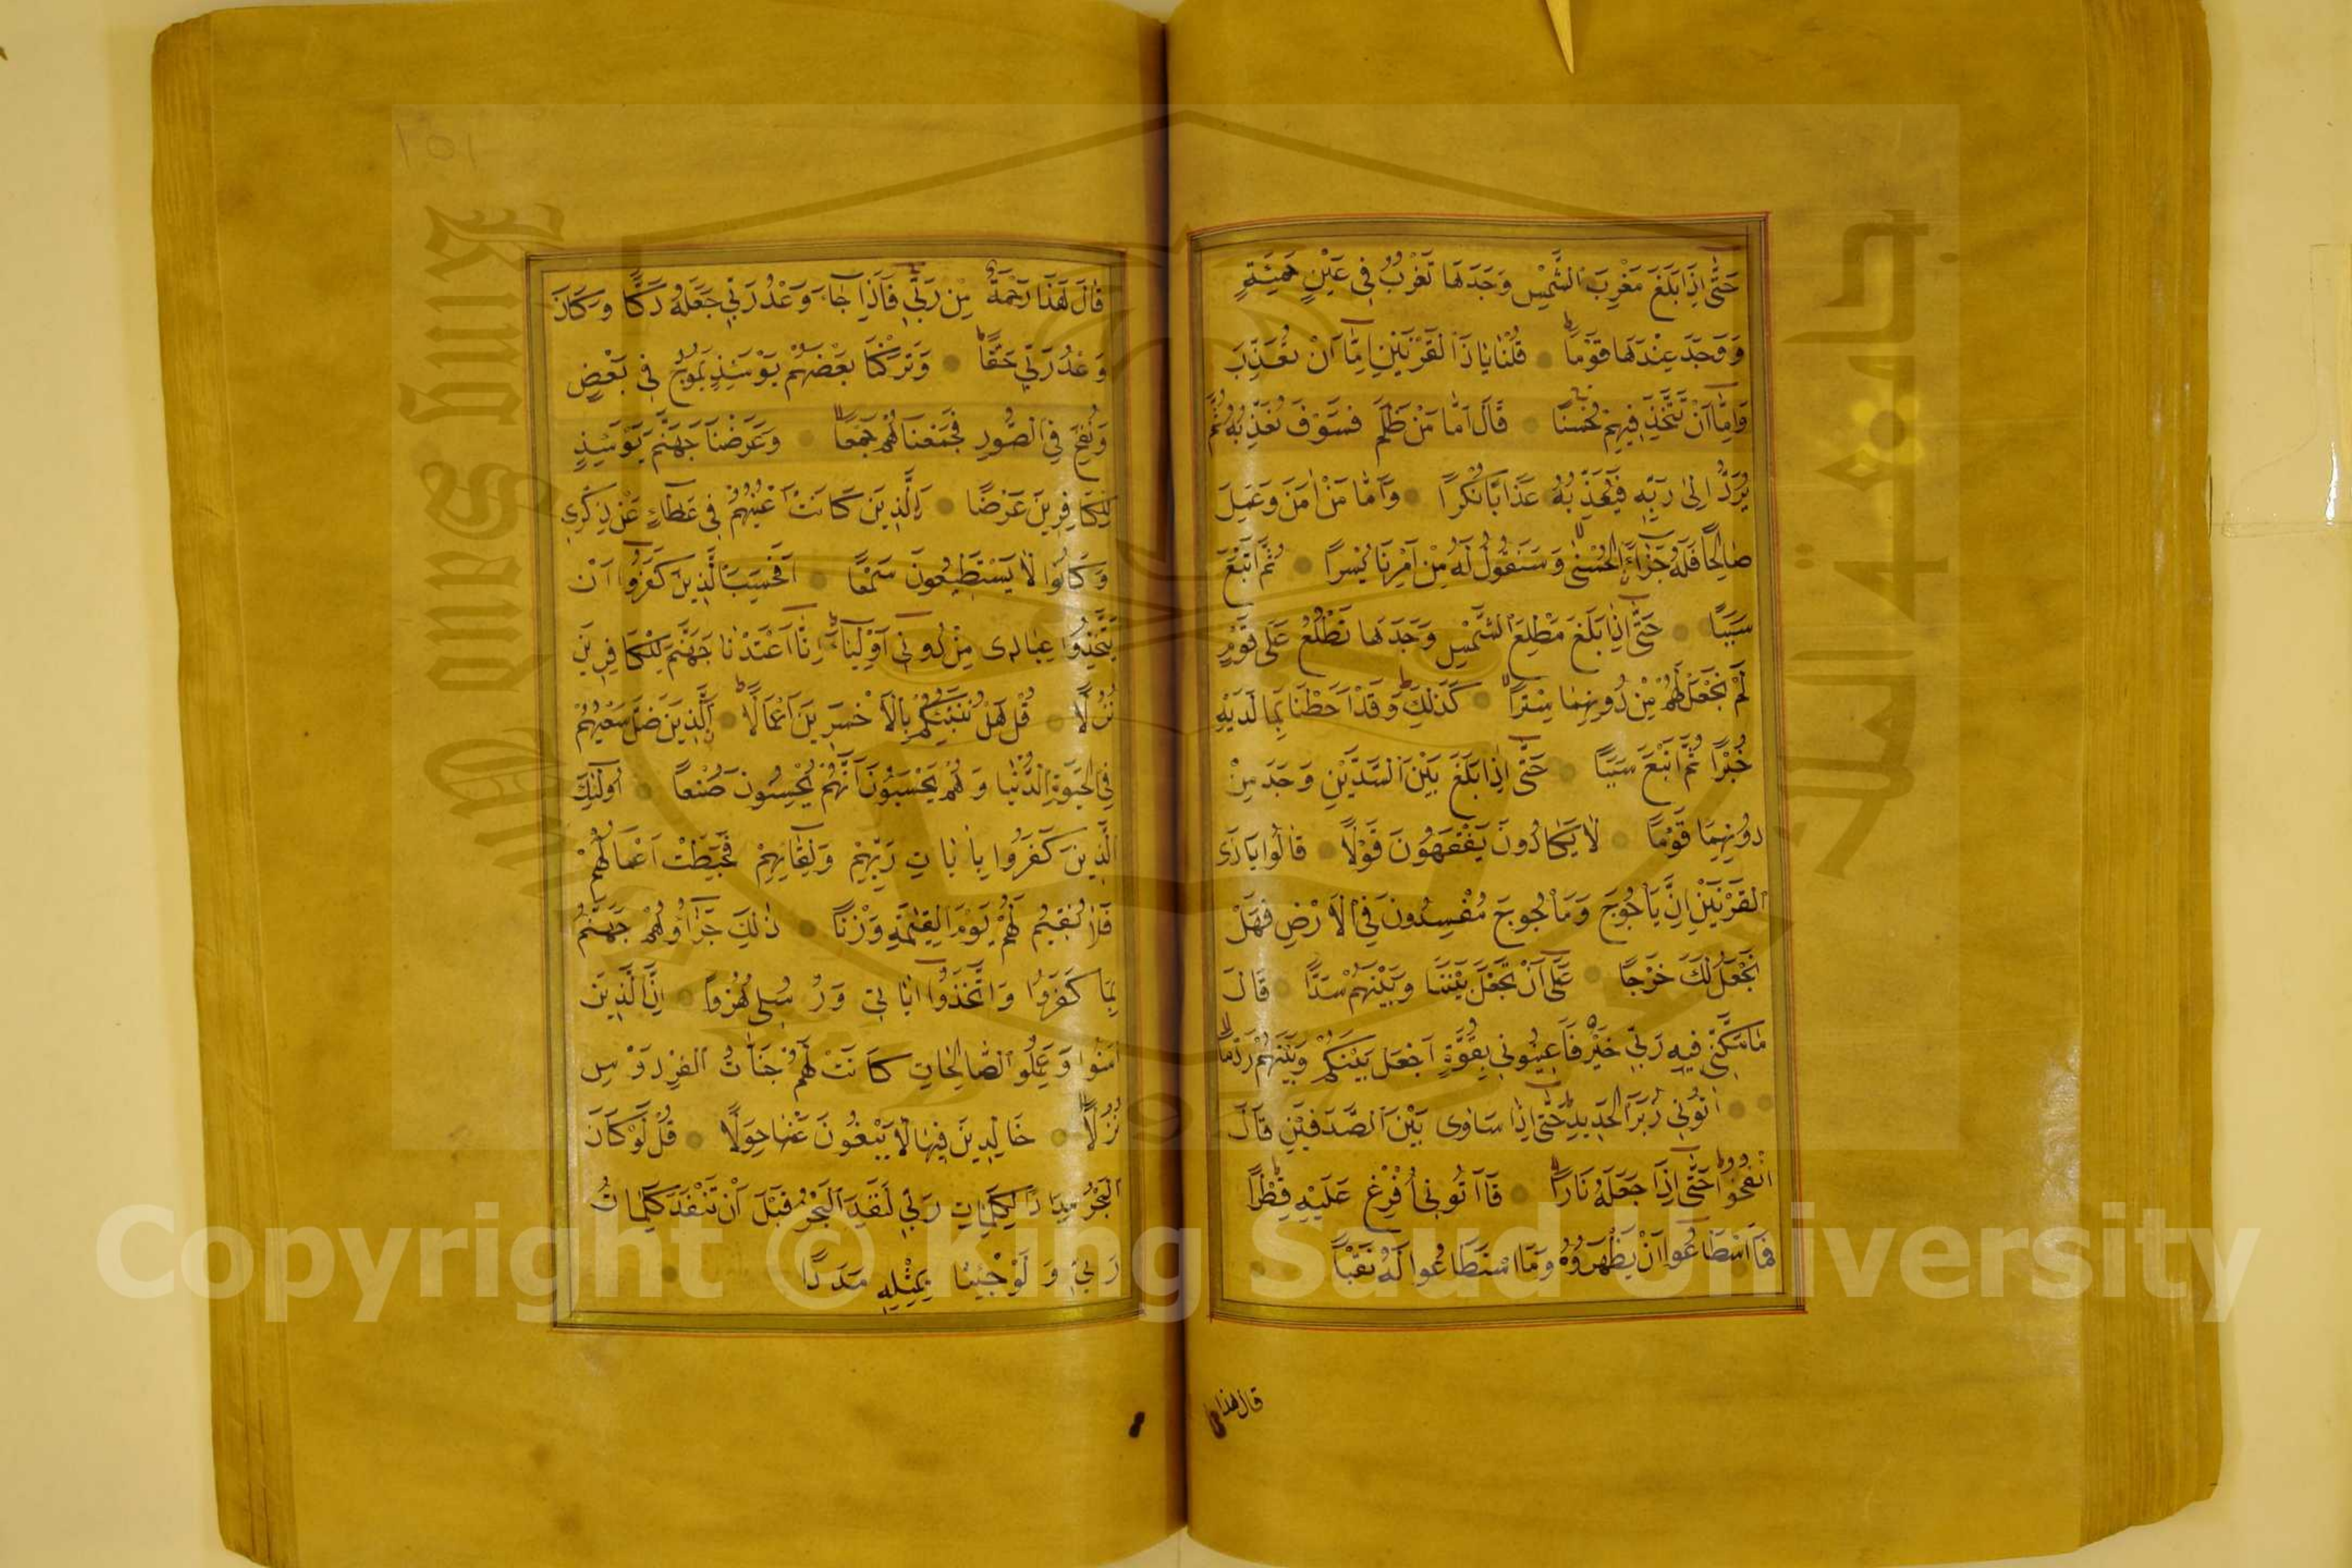 حَتّٰى اِذَا بَلَغَ مَغْرِبَ الشَّمْسِ وَجَدَهَا تَغْرُبُ فِى عَيْنٍ حَمِئَةٍ
وَوَجَدَ عِنْدَهَا قَوْمًا قُلْنَا يَا ذَا الْقَرْنَيْنِ اِمَّا اَنْ تُعَذِّبَ
وَاِمَّا اَنْ تَتَّخِذَ فِيهِمْ حُسْنًا قَالَ اَمَّا مَنْ ظَلَمَ فَسَوْفَ نُعَذِّبُهُ ثُمَّ
يُرَدُّ اِلٰى رَبِّهِ فَيُعَذِّبُهُ عَذَابًا نُكْرًا وَاَمَّا مَنْ اٰمَنَ وَعَمِلَ
صَالِحًا فَلَهُ جَزَاءً الْحُسْنٰى وَسَنَقُولُ لَهُ مِنْ اَمْرِنَا يُسْرًا ثُمَّ اَتْبَعَ
سَبَبًا حَتّٰى اِذَا بَلَغَ مَطْلِعَ الشَّمْسِ وَجَدَهَا تَطْلُعُ عَلٰى قَوْمٍ
لَمْ نَجْعَلْ لَهُمْ مِنْ دُونِهَا سِتْرًا كَذٰلِكَ وَقَدْ اَحَطْنَا بِمَا لَدَيْهِ
خُبْرًا ثُمَّ اَتْبَعَ سَبَبًا حَتّٰى اِذَا بَلَغَ بَيْنَ السَّدَّيْنِ وَجَدَ مِنْ
دُونِهِمَا قَوْمًا لَا يَكَادُونَ يَفْقَهُونَ قَوْلًا قَالُوا يَا ذَى
الْقَرْنَيْنِ اِنَّ يَاْجُوجَ وَمَاْجُوجَ مُفْسِدُونَ فِى الْاَرْضِ فَهَلْ
نَجْعَلُ لَكَ خَرْجًا عَلٰى اَنْ تَجْعَلَ بَيْنَنَا وَبَيْنَهُمْ سَدًّا قَالَ
مَا مَكَّنِّى فِيهِ رَبِّى خَيْرٌ فَاَعِينُونِى بِقُوَّةٍ اَجْعَلْ بَيْنَكُمْ وَبَيْنَهُمْ رَدْمًا
اٰتُونِى زُبَرَ الْحَدِيدِ حَتّٰى اِذَا سَاوٰى بَيْنَ الصَّدَفَيْنِ قَالَ
انْفُخُوا حَتّٰى اِذَا جَعَلَهُ نَارًا قَالَ اٰتُونِى اُفْرِغْ عَلَيْهِ قِطْرًا
فَمَا اسْطَاعُوا اَنْ يَظْهَرُوهُ وَمَا اسْتَطَاعُوا لَهُ نَقْبًا
قال هذا
١٥١
قَالَ هٰذَا رَحْمَةٌ مِنْ رَبِّى فَاِذَا جَاءَ وَعْدُ رَبِّى جَعَلَهُ دَكًّا وَكَانَ
وَعْدُ رَبِّى حَقًّا وَتَرَكْنَا بَعْضَهُمْ يَوْمَئِذٍ يَمُوجُ فِى بَعْضٍ
وَنُفِخَ فِى الصُّورِ فَجَمَعْنَاهُمْ جَمْعًا وَعَرَضْنَا جَهَنَّمَ يَوْمَئِذٍ
لِلْكَافِرِينَ عَرْضًا اَلَّذِينَ كَانَتْ اَعْيُنُهُمْ فِى غِطَاءٍ عَنْ ذِكْرِى
وَكَانُوا لَا يَسْتَطِيعُونَ سَمْعًا اَفَحَسِبَ الَّذِينَ كَفَرُوا اَنْ
يَتَّخِذُوا عِبَادِى مِنْ دُونِى اَوْلِيَاءَ اِنَّا اَعْتَدْنَا جَهَنَّمَ لِلْكَافِرِينَ
نُزُلًا قُلْ هَلْ نُنَبِّئُكُمْ بِالْاَخْسَرِينَ اَعْمَالًا اَلَّذِينَ ضَلَّ سَعْيُهُمْ
فِى الْحَيٰوةِ الدُّنْيَا وَهُمْ يَحْسَبُونَ اَنَّهُمْ يُحْسِنُونَ صُنْعًا اُولٰئِكَ
الَّذِينَ كَفَرُوا بِاٰيَاتِ رَبِّهِمْ وَلِقَائِهِ فَحَبِطَتْ اَعْمَالُهُمْ
فَلَا نُقِيمُ لَهُمْ يَوْمَ الْقِيٰمَةِ وَزْنًا ذٰلِكَ جَزَاؤُهُمْ جَهَنَّمُ
بِمَا كَفَرُوا وَاتَّخَذُوا اٰيَاتِى وَرُسُلِى هُزُوًا اِنَّ الَّذِينَ
اٰمَنُوا وَعَمِلُوا الصَّالِحَاتِ كَانَتْ لَهُمْ جَنَّاتُ الْفِرْدَوْسِ
نُزُلًا خَالِدِينَ فِيهَا لَا يَبْغُونَ عَنْهَا حِوَلًا قُلْ لَوْ كَانَ
الْبَحْرُ مِدَادًا لِكَلِمَاتِ رَبِّى لَنَفِدَ الْبَحْرُ قَبْلَ اَنْ تَنْفَدَ كَلِمَاتُ
رَبِّى وَلَوْ جِئْنَا بِمِثْلِهِ مَدَدًا
جامعة الملك
King Saud Uni
Copyright © King Saud University